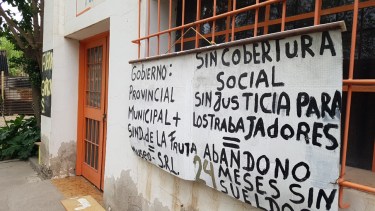 GOBIERNO:
PROVINCIAL
MUNICIPAL +
SIND. DE LA FRUTA
SRL
SIN COBERTURA
SOCIAL
SIN JUSTICIA PARA
LOS TRABAJADORES
=
ABANDONO
MESES SIN
SUELDOS